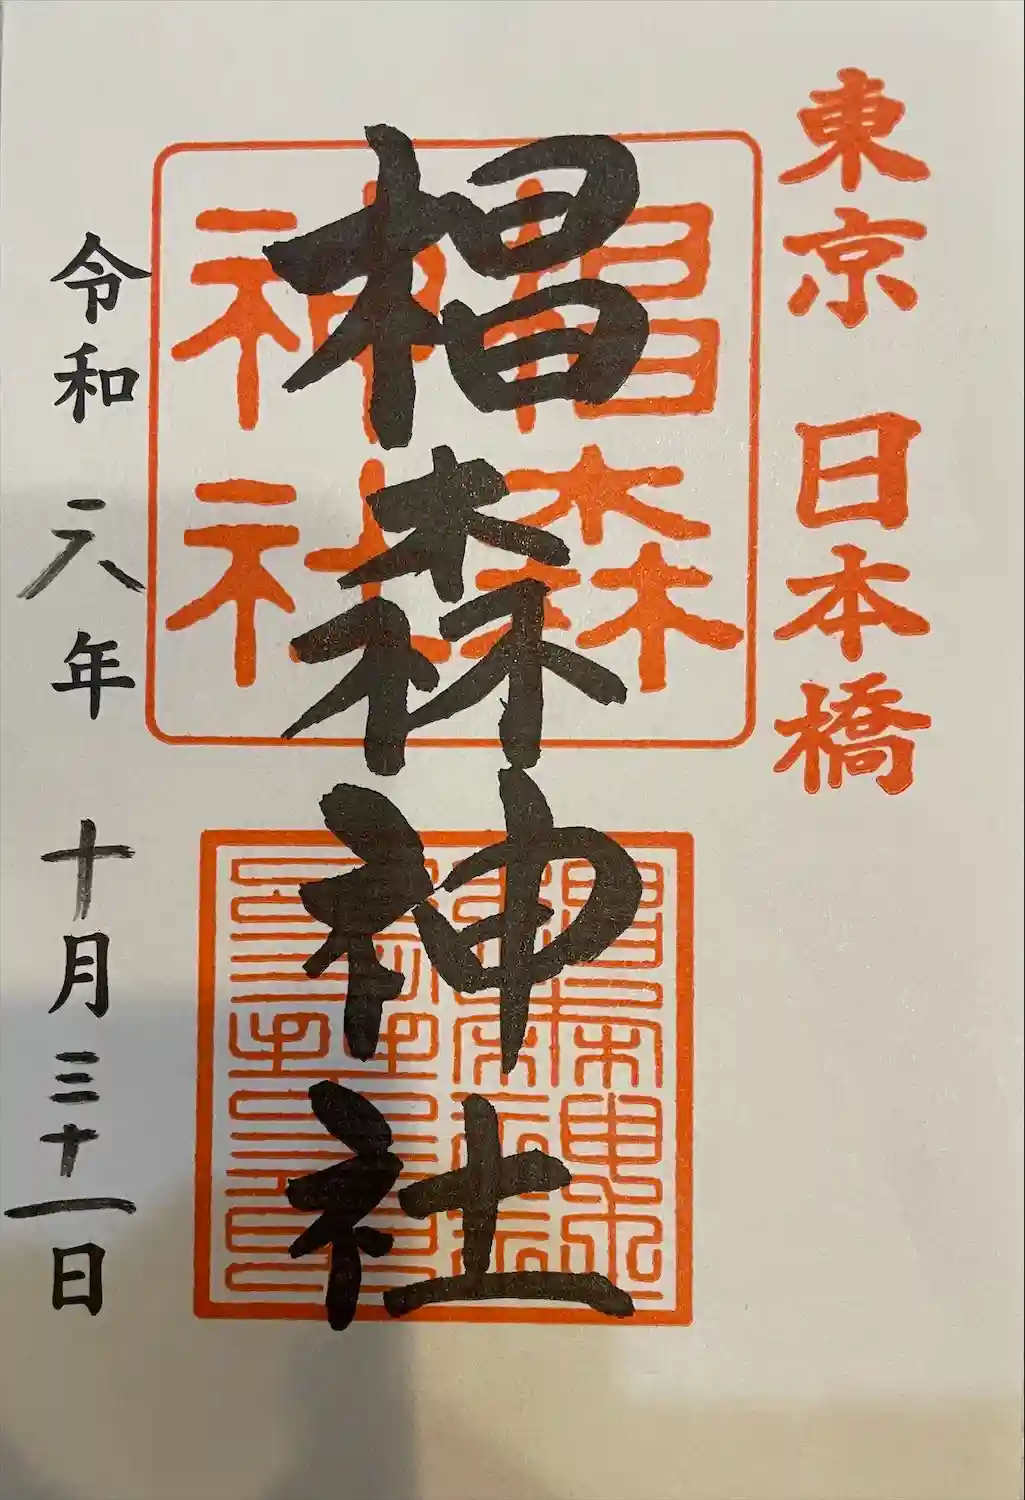 東京 日本橋
椙森
神社
椙森神社
令和六年十月三十一日